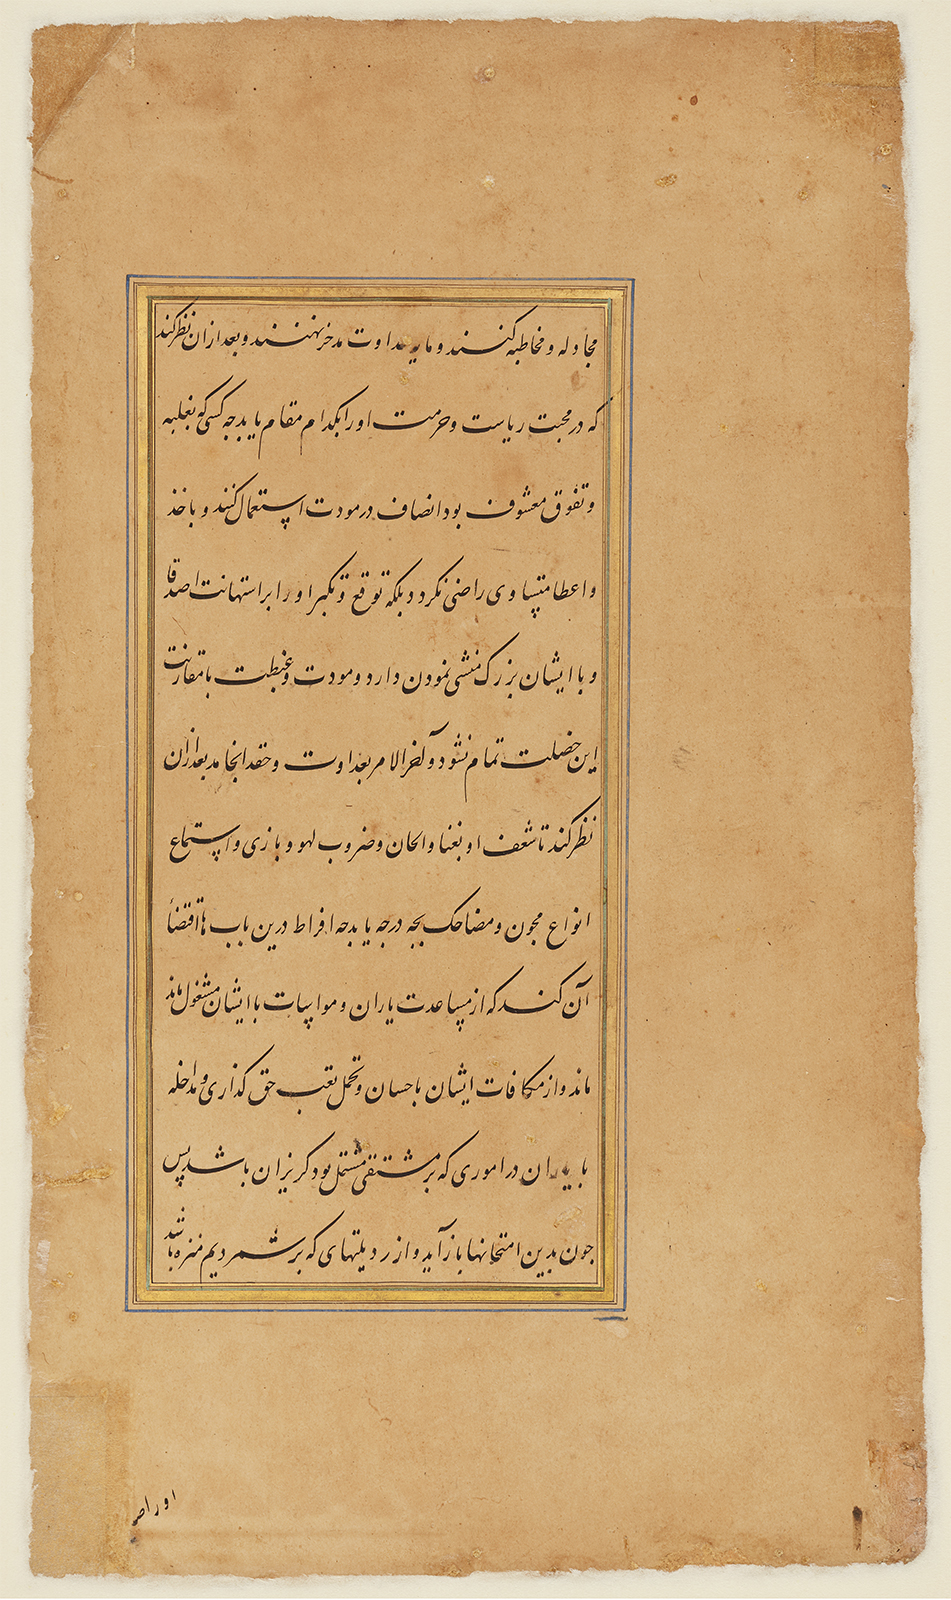 مجاوله و مخاطبه کنند و مایه عداوت مدخر نهند و بعد ازان نظر کند
که در محبت ریاست و حرمت او را بکدام مقام یابد جه کسی که بغلبه
و تفوق معشوف بود انصاف در مودت استعمال نکند و باخذ
و اعطا متساوی راضی نکردد بلکه توقع و تکبر او را بر استهانت اصدقا
و با ایشان بزرک منشی نمودن دارد و مودت و غبطت با مقارنت
این خصلت تمام نشود و آخر الامر بعداوت و حقد انجامد بعد ازان
نظر کند تا شعف او بغنا و الحان و ضروب لهو و بازی و استماع
انواع مجون و مضاحک بجه درجه یابد جه افراط درین باب ها اقتضاء
آن کند که از مساعدت یاران و مواسات با ایشان مشغول ماند
ماند و از مکافات ایشان باحسان و تحمل تعب حق کذاری و مداخله
با یاران در اموری که بر مشقتی مشتمل بود کریزان باشد پس
جون بدین امتحانها باز آید و از ردیلتهای که برشمردیم منزه باشد
او را اصد